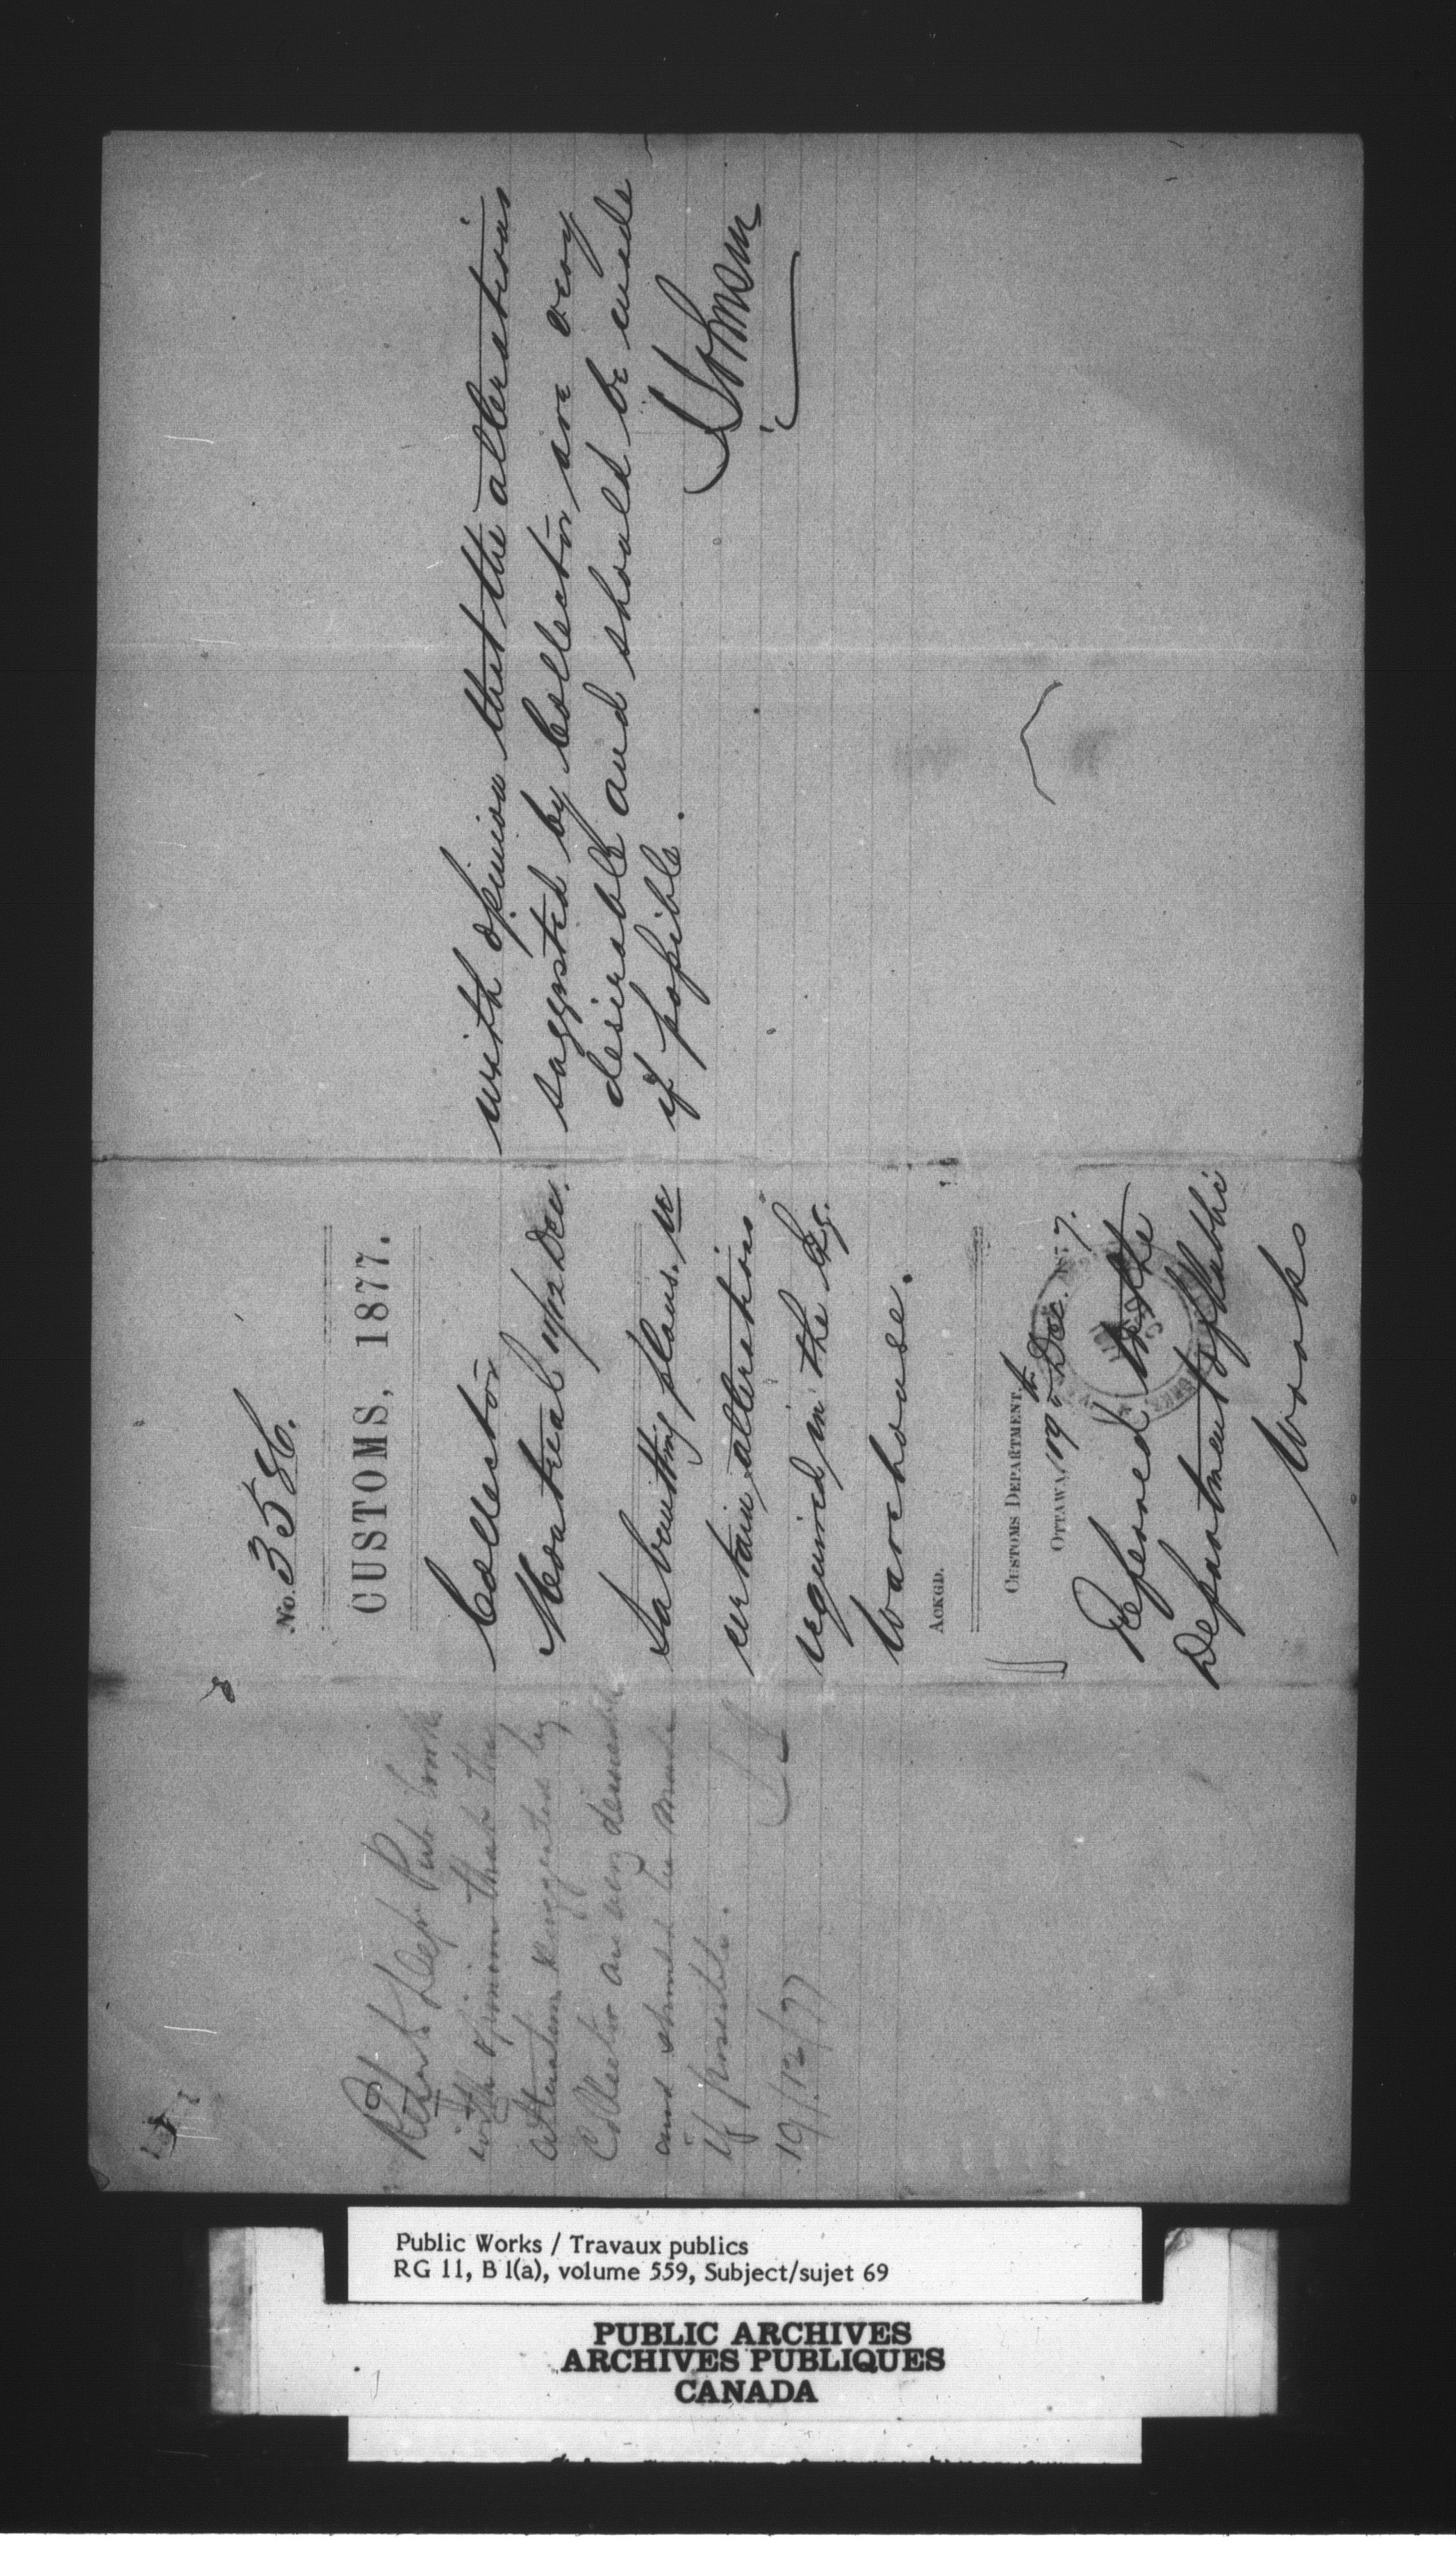 No. 3586.
CUSTOMS, 1877.
Collector
Montreal 14/12 Dec.
Submitting plans. re
certain alterations
required in the Ex.
Warehouse.
ACKGD.
CUSTOMS DEPARTMENT,
OTTAWA, 19th Dec. 1877.
Referred to the
Department of Public
Works
with opinion that the alterations
suggested by Collector are very
desirable and should be made
if possible.
J Johnson
Refer to Dept Pub Works
with opinion that the
alterations suggested by
Collector are very desirable
and should be made
if possible.
19/12/77
Public Works / Travaux publics
RG 11, B 1(a), volume 559, Subject/sujet 69
PUBLIC ARCHIVES
ARCHIVES PUBLIQUES
CANADA